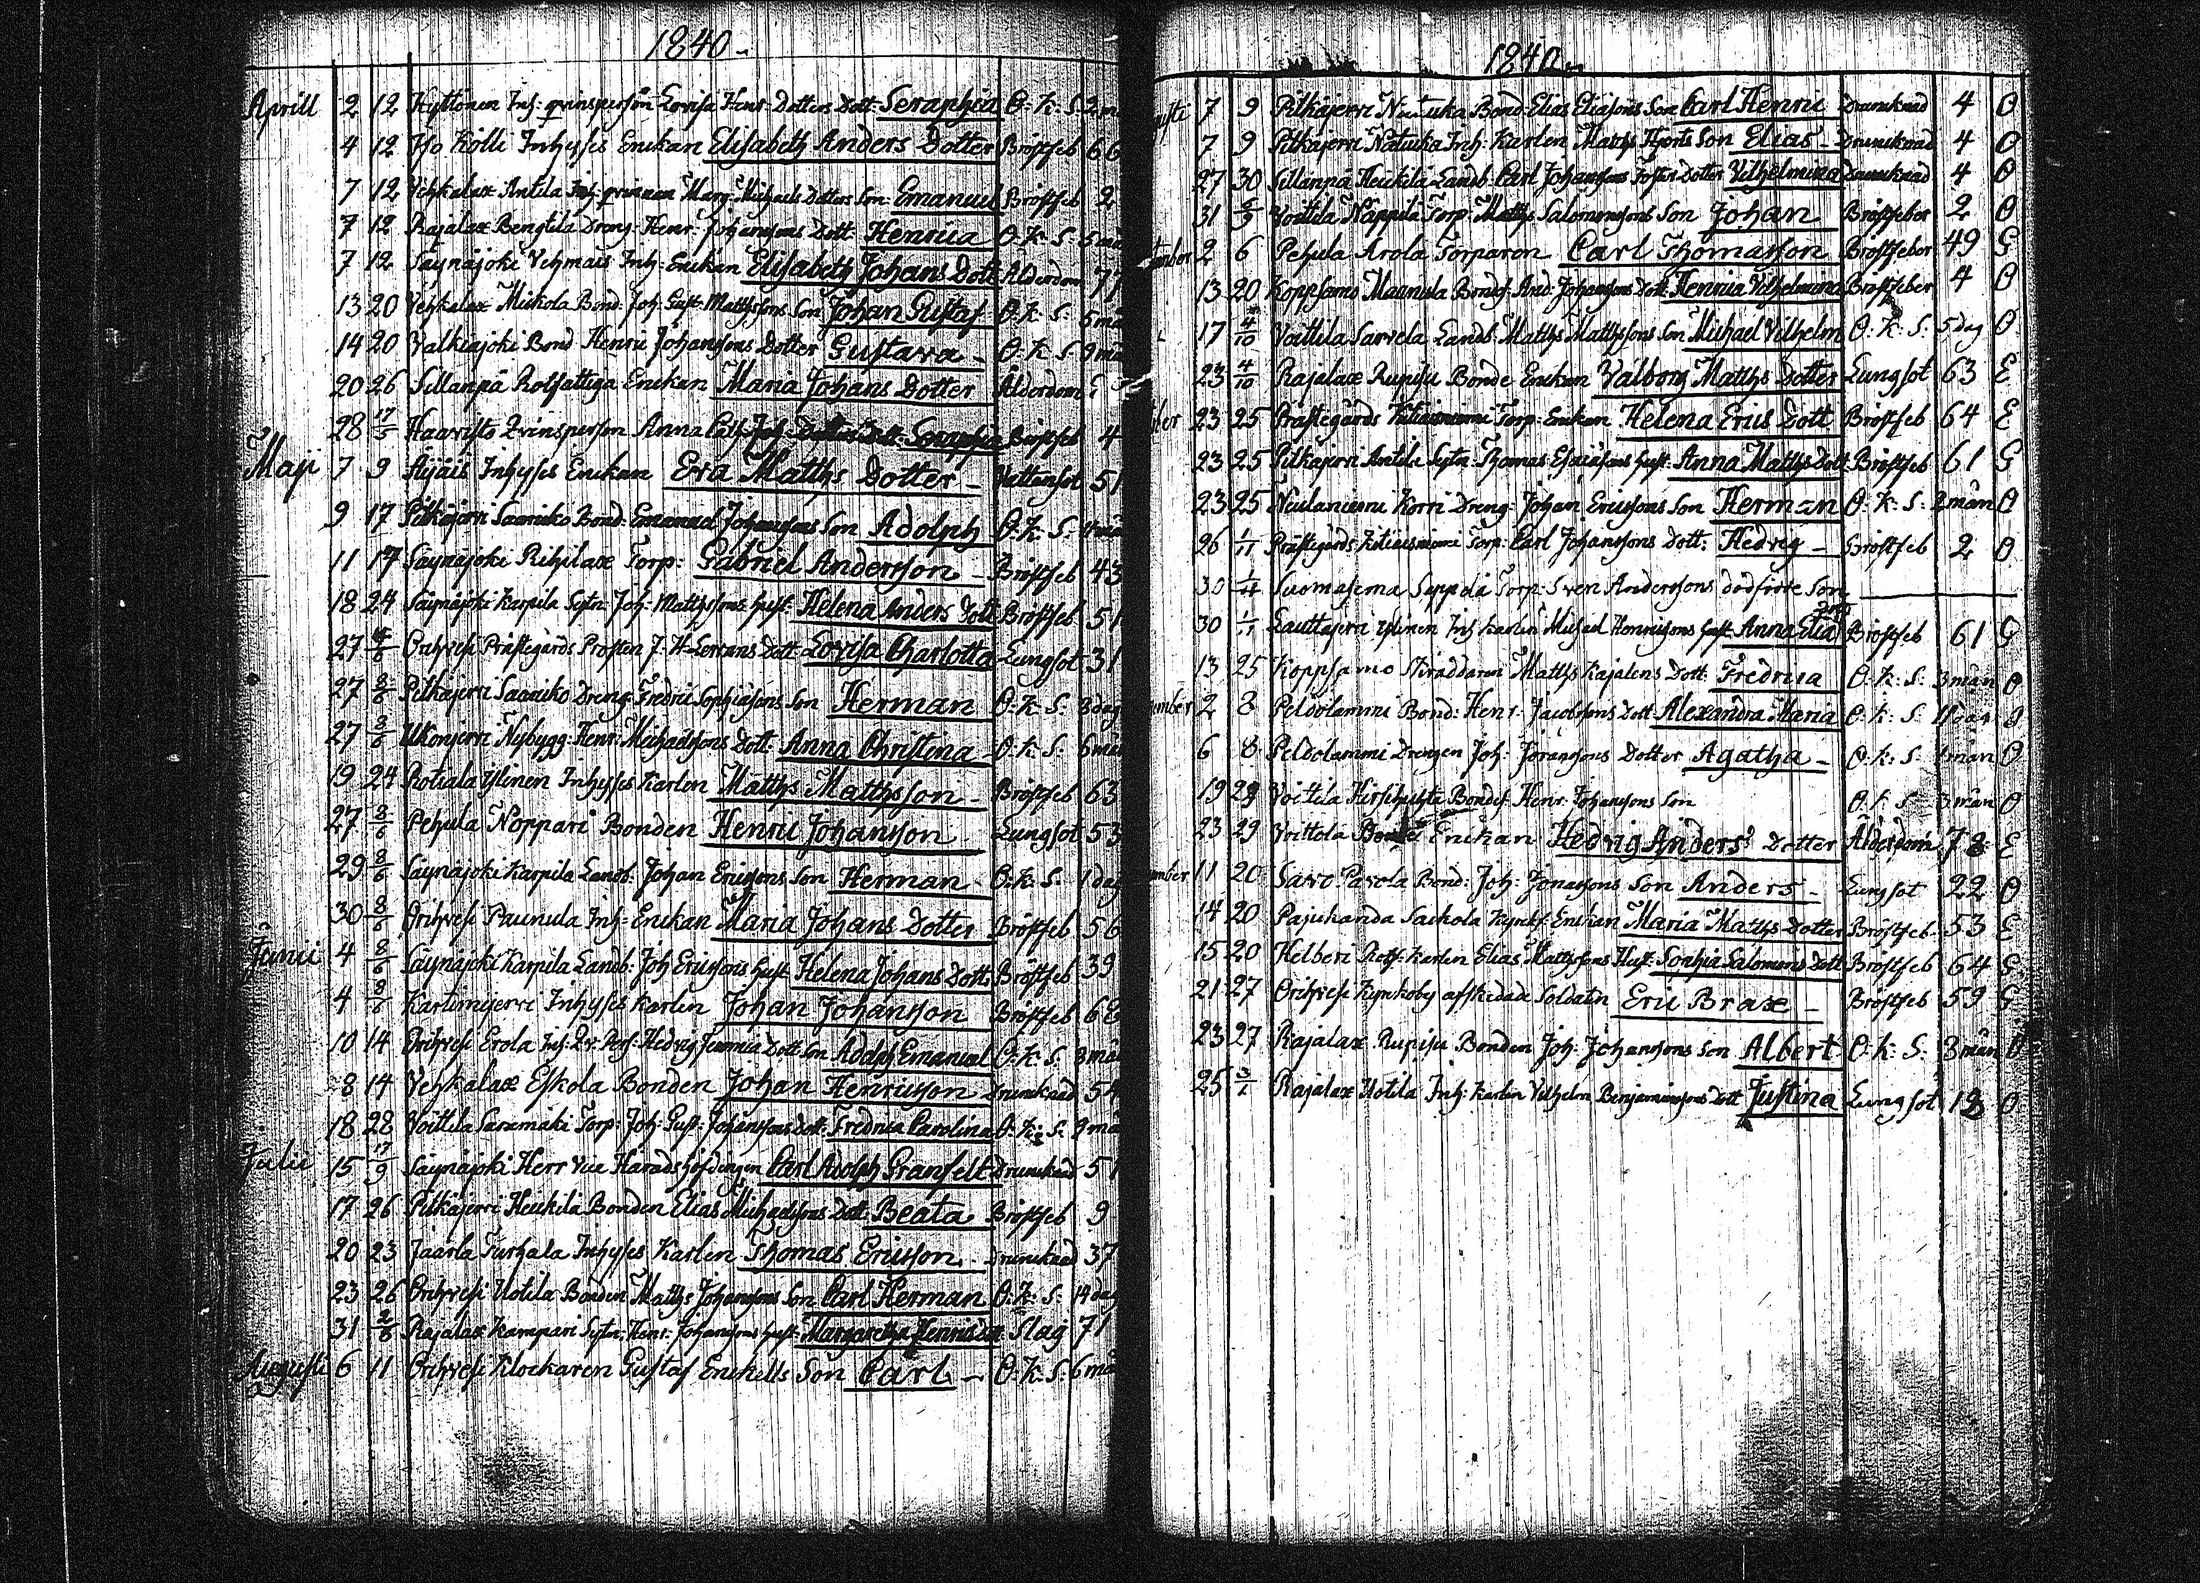 1840
Aprill 2 12 Hyttönen Inh: qvinsperson Lovisa Henr: Dotters Dott: Seraphia O. K. S. 2 m
4 12 Iso Kölli Inhyses Enckan Elisabeth Anders Dotter Bröstfeb 66
7 12 Vehkalax Antila Inh: qvinnan Marg: Michaels Dotters Son Emanuel Bröstfeb 2
7 12 Rajalax Bengtila Dräng: Henr: Johanssons Dott: Henrica O. K. S.
7 12 Säynäjoki Vehmais Inh: Enckan Elisabeth Johans Dott Ålderdom 77
13 20 Vehkalax Mickola Bond: Joh: Gust: Matthssons Son Johan Gustaf O. K. S. 5 må
14 20 Valkiajoki Bond Henric Johanssons Dotter Gustava O. K. S. 9 mån
20 26 Sillanpä Rotfattiga Enckan Maria Johans Dotter Ålderdom
28 17/5 Haavisto Qvinsperson Anna Bröstfeb 4
Maji 7 9 Äijäis Inhyses Enckan Eva Matths Dotter Vattensot 51
9 17 Pitkäjerri Saariko Bond: Emanuel Johanssons Son Adolph O. K. S.
11 17 Säynäjoki Rihilax Torp: Gabriel Andersson Bröstfeb 43
18 24 Säynäjoki Karpila Sytn: Joh: Matthssons hust: Helena Anders Dott Bröstfeb 51
27 Orihvesi Prästegårds Prosten Dott Lovisa Charlotta Lungsot 31
27 8/6 Pitkäjerri Saariko Dreng: Fredric Sophiasons Son Herman O. K. S. 8 dag
27 8/6 Ukonjerri Nybygg: Henr: Michaelssons Dott: Anna Christina O. K. S. 6 må
19 24 Rotiala Ylinen Inhyses Karlen Matths Matthsson Bröstfeb 63
27 8/6 Pehula Noppari Bonden Henric Johansson Lungsot 53
29 8/6 Säynäjoki Karpila Landb: Johan Ericssons Son Herman O. K. S. 1 dag
30 8/6 Orihvesi Paunula Inh: Enckan Maria Johans Dotter Bröstfeb 56
Junii 4 8/6 Säynäjoki Karpila Landb: Joh Ericssons hust Helena Johans Dott Bröstfeb 39
4 8/6 Karlimijerri Inhyses Karlen Johan Johansson Bröstfeb
10 14 Orihvesi Erola Inh: Qv: Pers: Hedvig Dott Son Adolph Emanuel O. K. S. 3 må
8 14 Vehkalax Eskola Bonden Johan Henricsson Drunknad 54
18 28 Voitila Saxamäki Torp: Joh: Gust: Johanssons Dott: Fredrica Carolina O. K. S. 9 må
Julii 15 17/9 Säynäjoki Herr Vice Häradshöfdingen Carl Adolph Granfelt Drunknad 51
17 26 Pitkäjerri Heickilä Bonden Elias Michaelssons Dott Beata Bröstfeb 9
20 23 Jaarla Turhala Inhyses Karlen Thomas Ericsson Drunknad 37
23 26 Orihvesi Uotila Bonden Matths Johanssons Son Carl Herman O. K. S. 14 dag
31 2/8 Rajalax Kampari Sytn: Henr: Johanssons hust: Margaretha Henrics Dott Slag 71
Augusti 6 11 Orihvesi Klockaren Gustaf Enckells Son Carl O. K. S. 6 må
1840
usti 7 9 Pitkäjerri Natuka Bond: Elias Eliassons Son Carl Henric Drunknad 4 O
7 9 Pitkäjerri Natuka Inh: Karlen Matths Hjorts Son Elias Drunknad 4 O
27 30 Sillanpä Heickilä Landb: Carl Johanssons Foster Dotter Vilhelmina Drunknad 4 O
31 Voitila Näppilä Torp: Matths Salomonssons Son Johan Bröstfeber 2 O
tember 2 6 Pehula Arola Torparen Carl Thomasson Bröstfeber 49 G
13 20 Koppsamo Maanula Bond: And: Johanssons Dott: Henrica Vilhelmina Bröstfeber 4 O
17 4/10 Voitila Sarvela Landb: Matths Matthssons Son Michael Vilhelm O. K. S. 5 dag O
23 4/10 Rajalax Rupisu Bonde Enckan Valborg Matths Dotter Lungsot 63 E
ber 23 25 Prästegårds Kitiäisniemi Torp: Enckan Helena Erics Dott Bröstfeb 64 E
23 25 Pitkäjerri Antila Sytn: Thomas Esaiäsons hust: Anna Matths Dott Bröstfeb 61 G
23 25 Neulaniemi Korri Dreng: Johan Ericssons Son Herman O. K. S. 2 mån O
26 1/11 Prästegårds Kitiäisniemi Torp: Carl Johanssons Dott: Hedvig Bröstfeb 2 O
30 1/11 Suomasema Seppälä Torp: Sven Anderssons dödfödde Son
30 1/11 Lauttajerri Ylinen Inh Karlen Michael Henricssons hust: Anna Elias Dott Bröstfeb 61 G
13 25 Koppsamo Skräddaren Matths Kajalens Dott: Fredrica O. K. S. 3 mån O
ember 2 8 Peldolammi Bond: Henr: Jacobssons Dott: Alexandra Maria O. K. S.
6 8 Peldolammi Drengen Joh: Göranssons Dotter Agatha O. K. S. 1 mån O
19 29 Voitila Hirsihuhta Bondes: Henr: Johanssons Son O. K. S. 3 mån O
23 29 Voittola Bonde Enckan Hedvig Anders Dotter Ålderdom 78 E
ember 11 20 Savo Pavola Bond: Joh: Jonassons Son Anders Lungsot 22 O
14 20 Pajukanda Sackola Enckan Maria Matths Dotter Bröstfeb 53 E
15 20 Helberi Rotf: Karlen Elias Matthssons Hust: Sophia Salomons Dott Bröstfeb 64 G
21 27 Orihvesi Kynkoby afskedade Soldaten Eric Brax Bröstfeb 59 G
23 27 Rajalax Rupisu Bonden Joh: Johanssons Son Albert O. K. S. 3 mån O
25 3/1 Rajalax Uotila Inh: Karlen Vilhelm Benjaminssons Dott Justina Lungsot 18 O